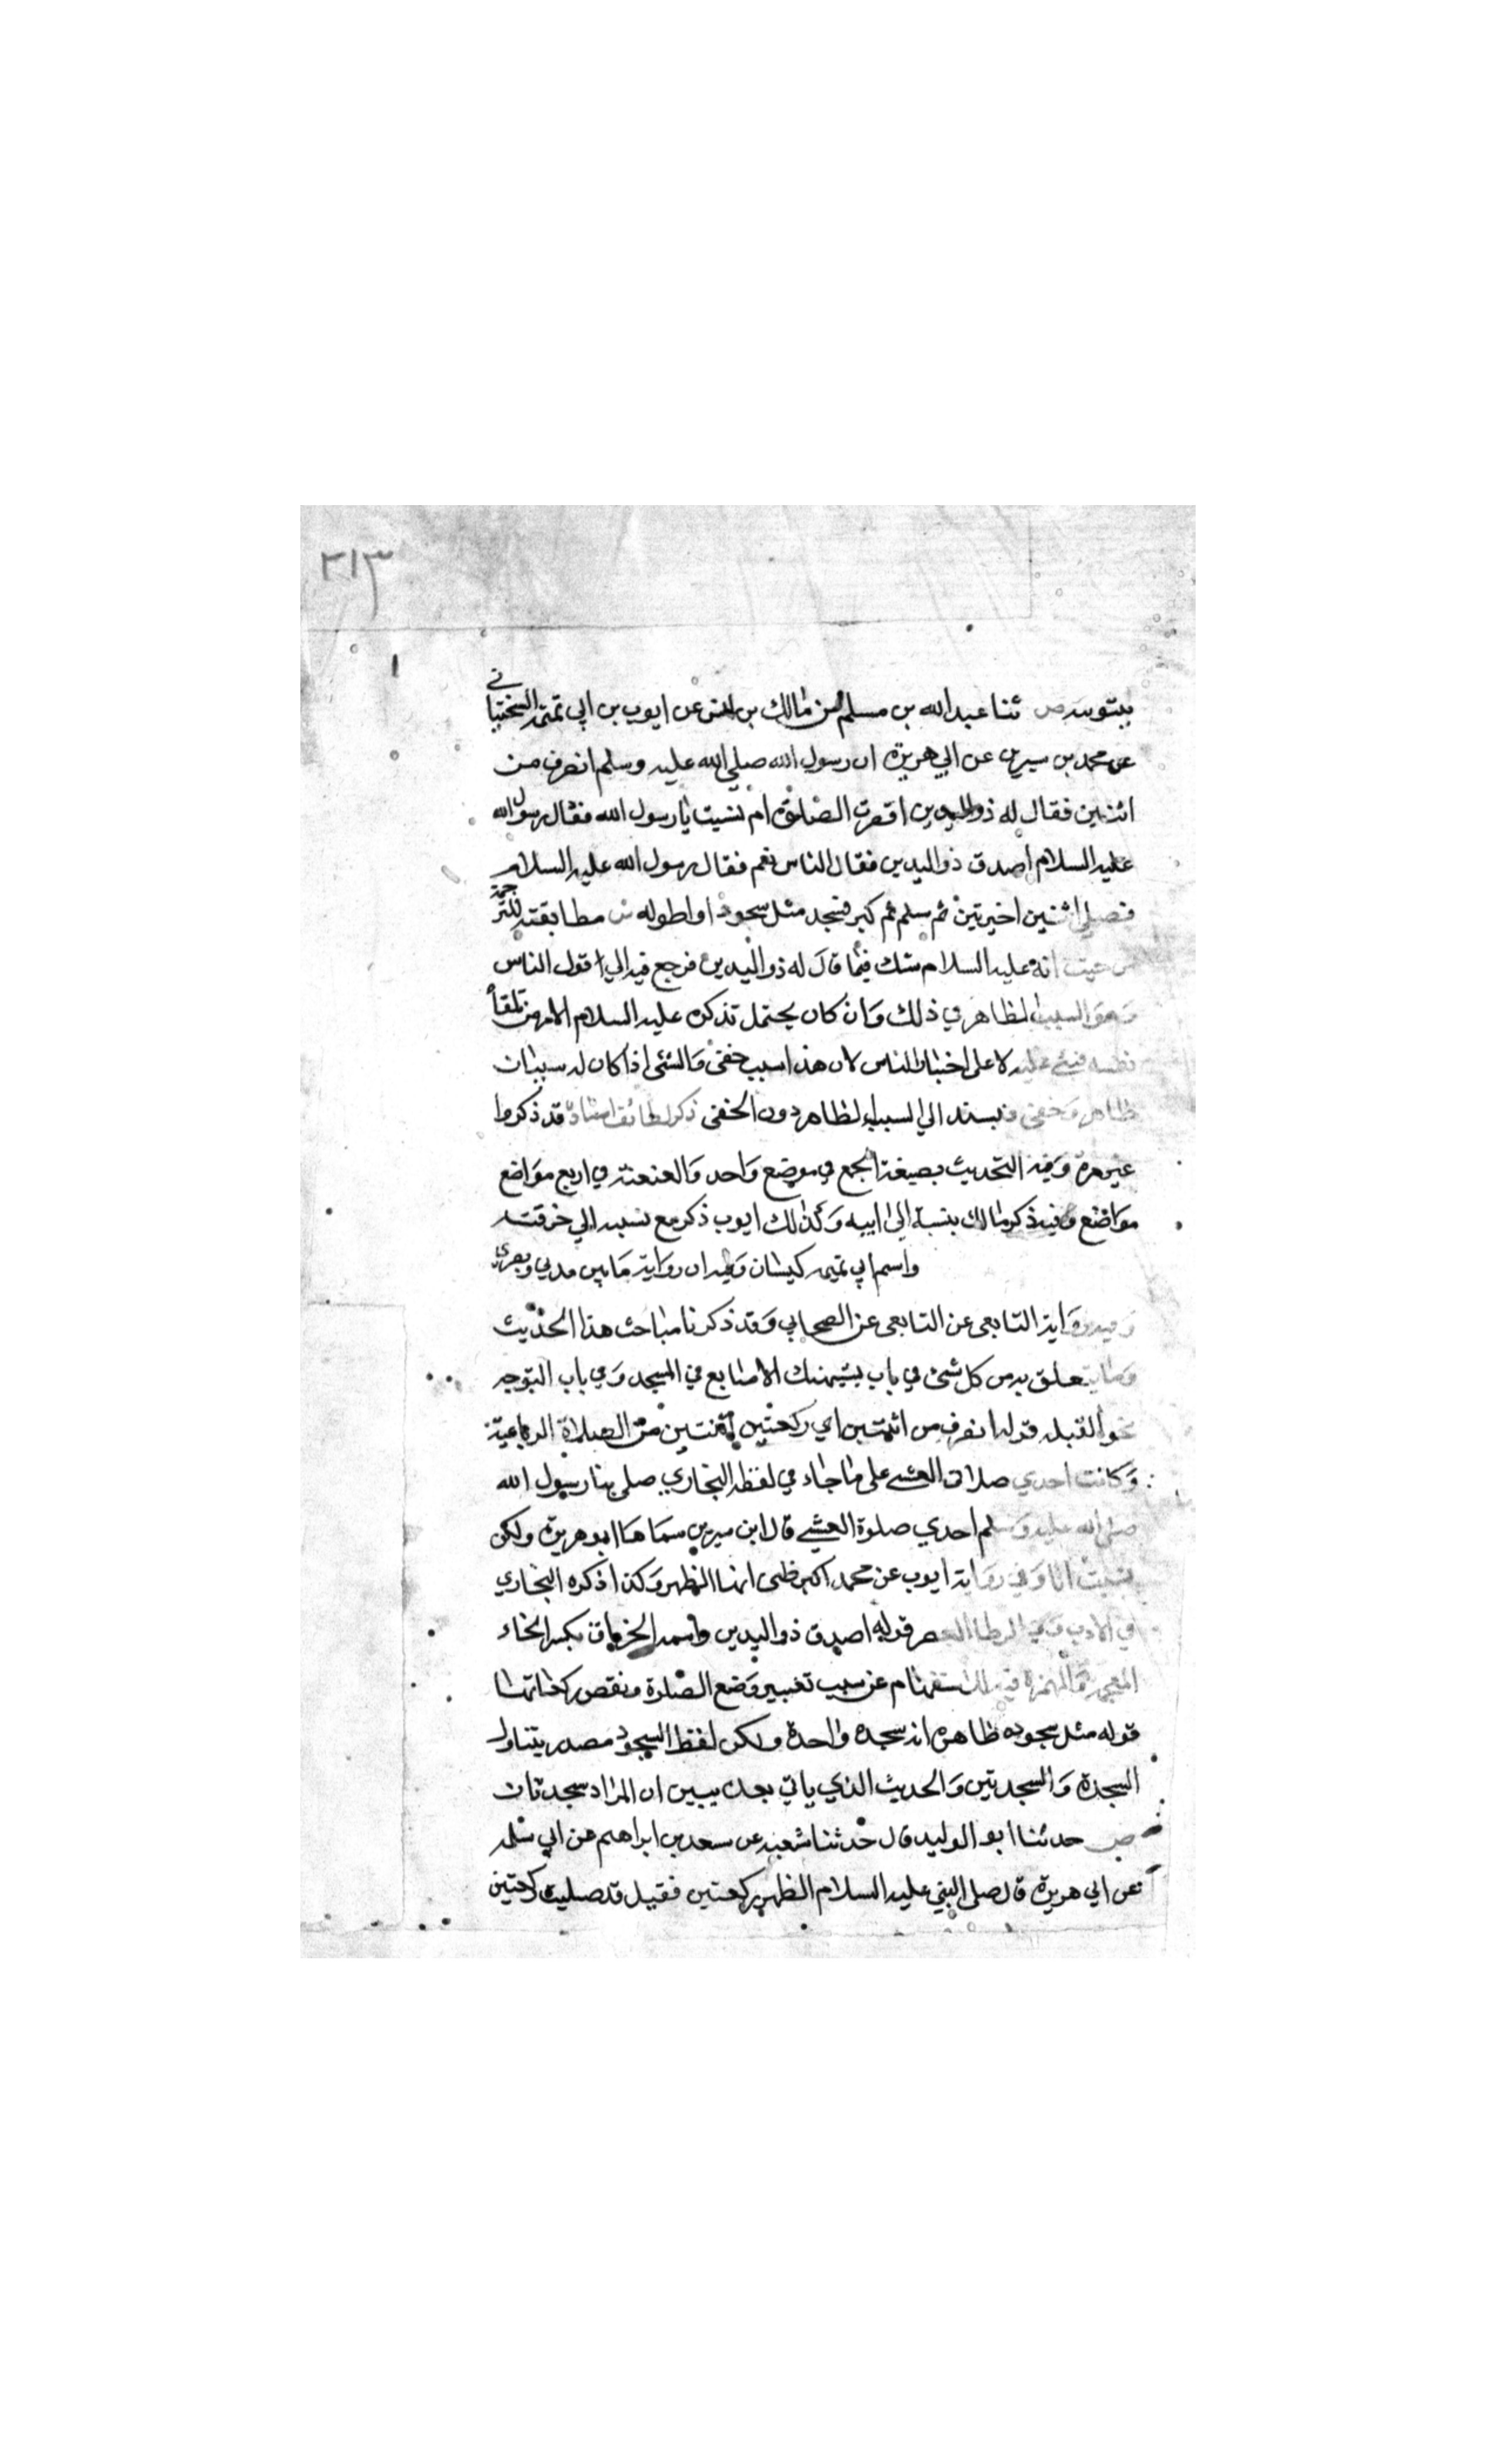 ٢١٣
١
ثنا عبد الله بن مسلم عن مالك بن انس عن ايوب بن ابي تميمة السختياني
عن محمد بن سيرين عن ابي هريرة ان رسول الله صلي الله عليه وسلم انصرف من
اثنين فقال له ذو اليدين اقصرت الصلوة ام نسيت يا رسول الله فقال رسول الله
عليه السلام اصدق ذو اليدين فقال الناس نعم فقال رسول الله عليه السلام
فصلي اثنين اخيرتين ثم سلم ثم كبر فسجد مثل سجوده او اطوله ش مطابقته للترجمة
من حيث انه عليه السلام شك فيما قال له ذو اليدين فرجع فيه الي قول الناس
وهو السبب الظاهر في ذلك وان كان يحتمل تذكره عليه السلام الامر من تلقأ
نفسه فبني عليه لا على اخبار الناس لان هذا سبب خفى والشئ اذا كان له سببان
ظاهر وخفى فيسند الي السبب الظاهر دون الخفى ذكر لطائف اسناده قد ذكروا
غير مرة وفيه التحديث بصيغة الجمع في موضع واحد والعنعنة في اربع مواضع
مواضع وفيه ذكر مالك بنسبة الي ابيه وكذلك ايوب ذكر مع نسبه الي خرقته
واسم ابي تميمه كيسان وفيه ان رواية ما بين مدني وبصري
وفيه رواية التابعى عن التابعى عن الصحابي وقد ذكرنا مباحث هذا الحديث
وما يتعلق به من كل شئ في باب تشبيك الاصابع في المسجد وفي باب التوجه
نحو القبله قوله انصرف من اثنتين اي ركعتين اثنتين من الصلاة الرباعية
وكانت احدي صلاتى العشي على ما جاء في لفظ البخاري صلى بنا رسول الله
صلى الله عليه وسلم احدي صلوة العشي قال ابن سيرين سماها ابو هريرة ولكن
نسيت انا وفي رواية ايوب عن محمد اكبر ظنى انها الظهر وكذا ذكره البخاري
في الادب وفي الموطا العصر قوله اصدق ذو اليدين واسمه الخرباق بكسر الخاء
المعجمة والهمزة فيه للاستفهام عن سبب تغيير وضع الصلاة ونقص ركعاتها
قوله مثل سجوده ظاهره انه سجده واحدة ولكن لفظ السجود مصدر يتناول
السجدة والسجدتين والحديث الذي ياتي بعده يبين ان المراد سجدتان
ص حدثنا ابو الوليد قال حدثنا شعبه عن سعد بن ابراهيم عن ابي سلمه
عن ابي هريرة قال صلى النبي عليه السلام الظهر ركعتين فقيل قد صليت ركعتين